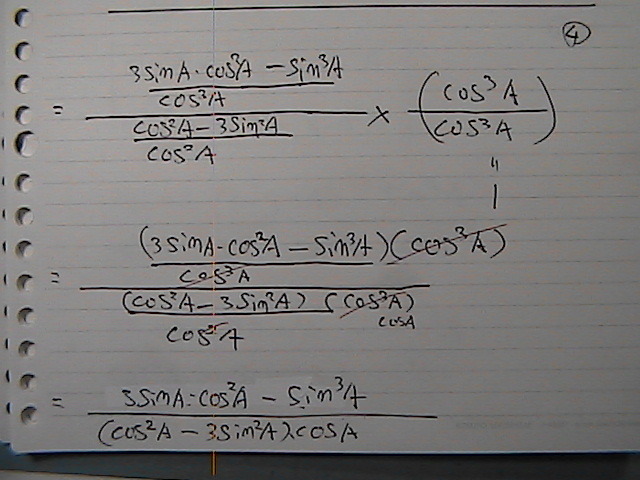 ④
= (3sinA·cos²A − sin³A / cos³A) / (cos²A − 3sin²A / cos²A) × (cos³A / cos³A)
"
1
= ((3sinA·cos²A − sin³A)(cos³A) / cos³A) / ((cos²A − 3sin²A)(cos³A) / cos²A)
cosA
= 3sinA·cos²A − sin³A / (cos²A − 3sin²A)·cosA